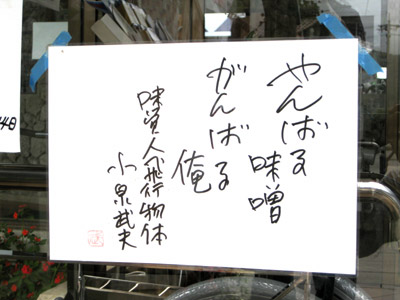 やんばる
味噌
がんばる
俺
味覚人飛行物体
小泉武夫